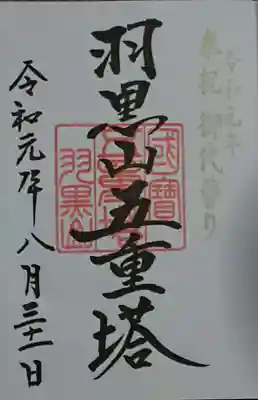 令和元年
奉祝 御代替り
羽黒山五重塔
令和元年八月三十一日
国宝
五重塔
羽黒山